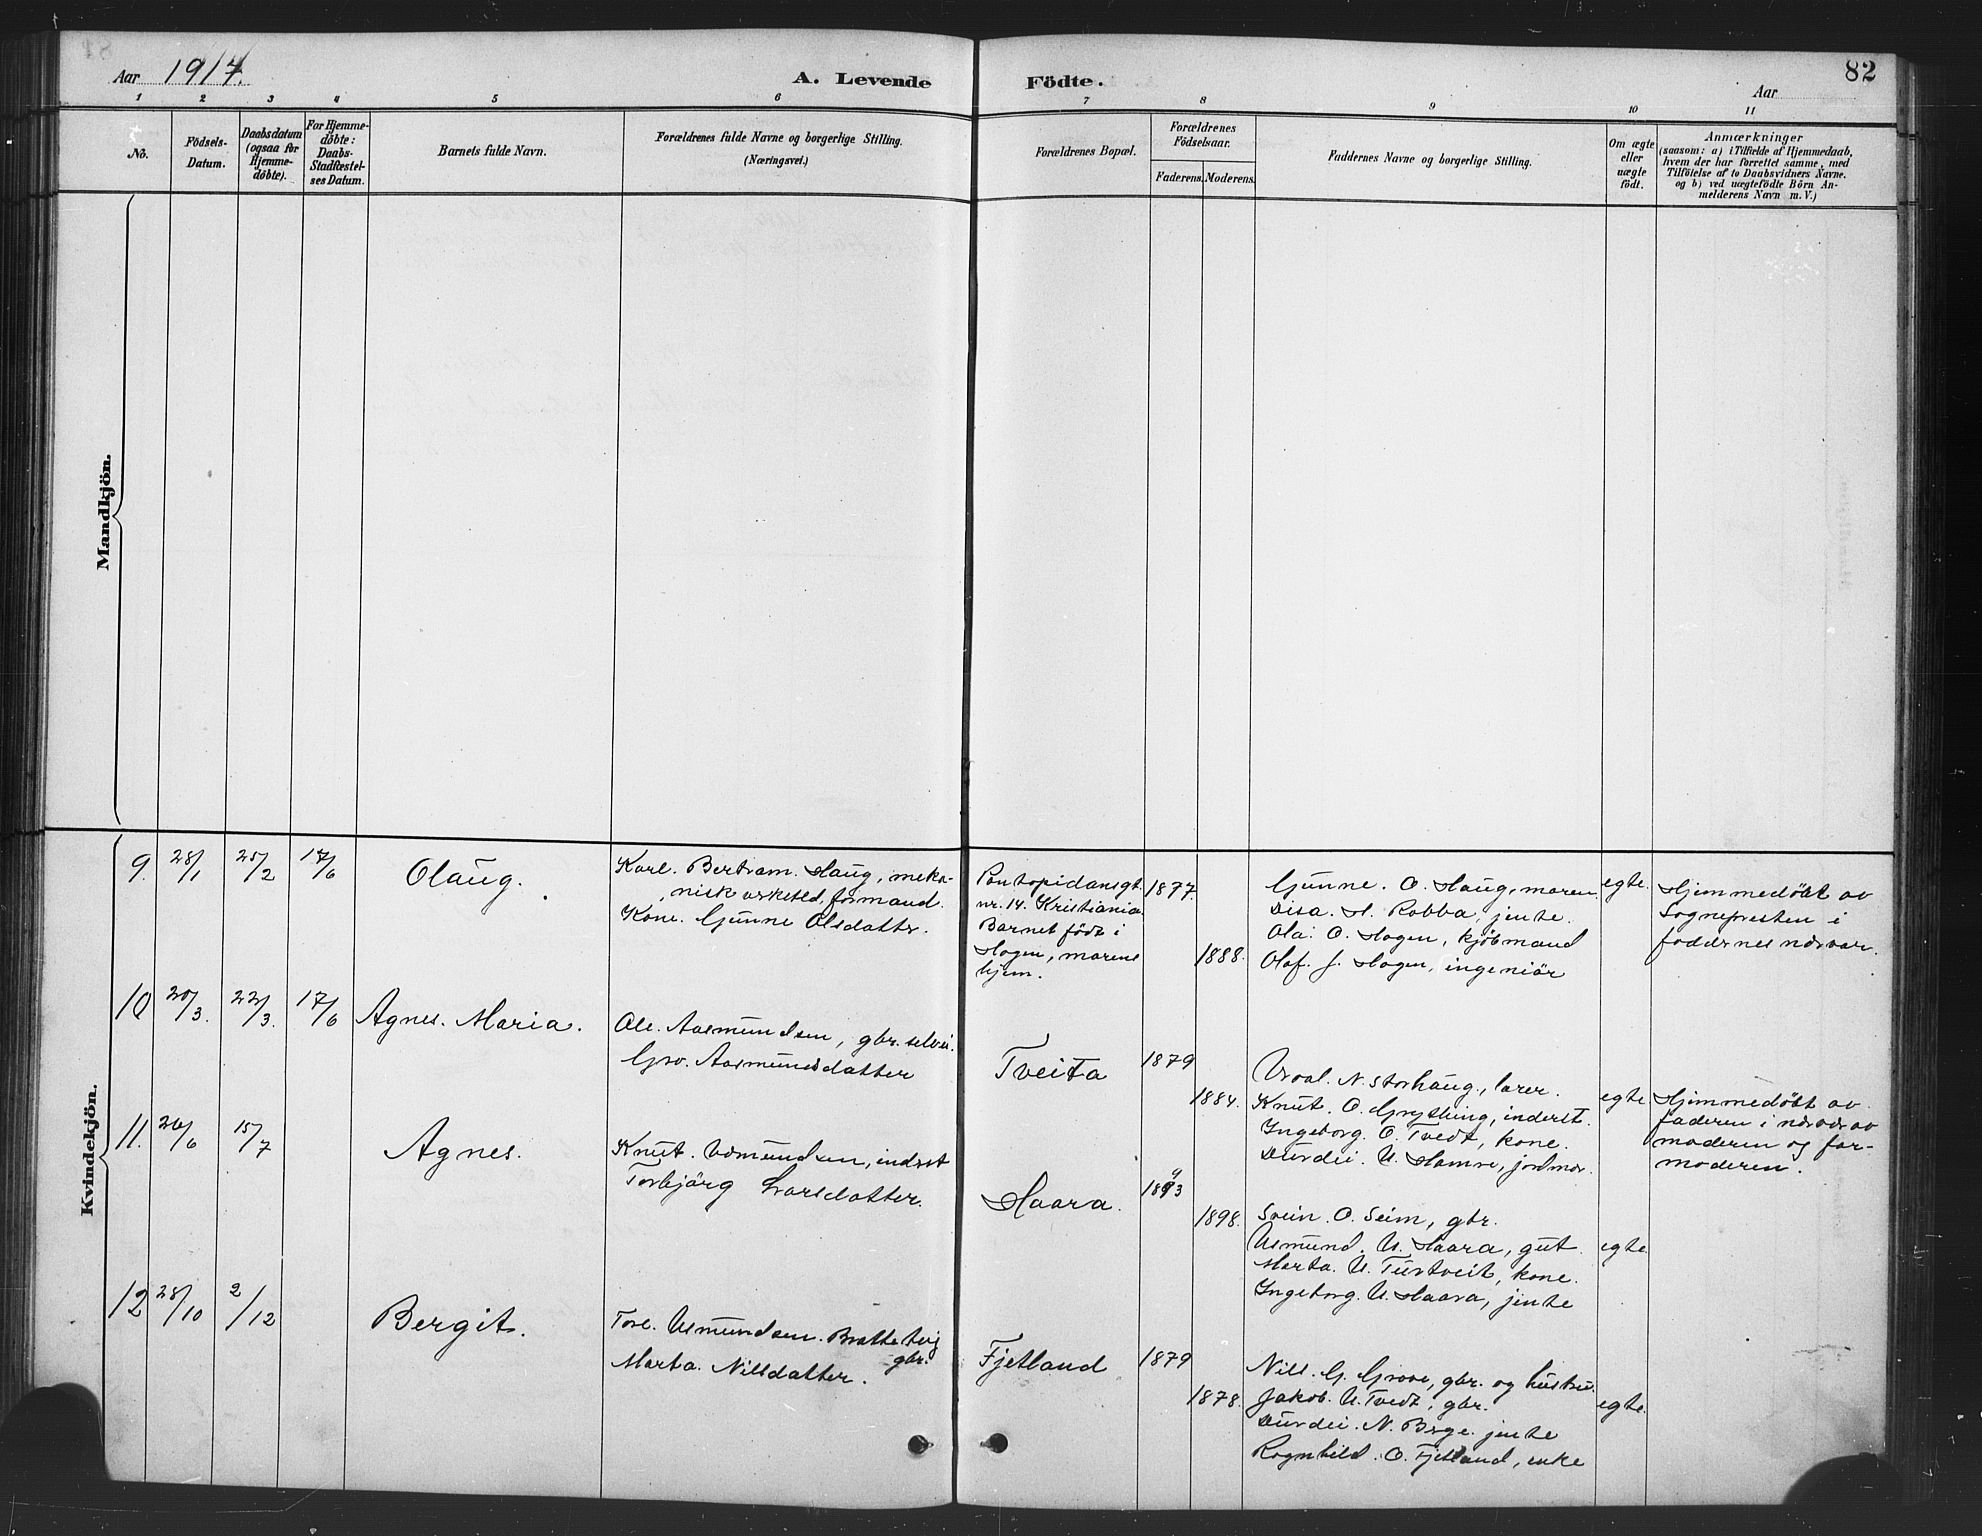 Aar 1917.
A. Levende
Födte.
82
Aar
1 2 3 4 5 6 7 8 9 10 11
No.
Födsels-
Datum.
Daabsdatum
(ogsaa for
Hjemme-
döbte).
For Hjemme-
döbte:
Daabs-
Stadfæstel-
ses Datum.
Barnets fulde Navn.
Forældrenes fulde Navne og borgerlige Stilling.
(Næringsvei.)
Forældrenes Bopæl.
Forældrenes
Födselsaar.
Faderens.
Moderens.
Faddernes Navne og borgerlige Stilling.
Om ægte
eller
uægte
födt.
Anmærkninger
(saasom: a) i Tilfælde af Hjemmedaab,
hvem der har forrettet samme, med
Tilföielse af to Daabsvidners Navne.
og b) ved uægtefödte Börn An-
melderens Navn m. V.)
Mandkjön.
Kvindekjön.
9. 28/1 25/2 17/6 Olaug.
Karl. Bertram. Haug, meka-
nisk verksted, formand.
Kone. Gunne Olsdatter.
Pontopidansgt.
nr. 14. Kristiania.
Barnet född i
Hagen, morens
hjem.
1877.
1888.
Gunne. O. Haug, moren
Disa. H. Rabba, jente.
Ola. O. Hagen, kjöbmand
Olaf. J. Hagen, ingeniör
egte.
Hjemmedöbt av
Sognepresten i
faddernes nærvær.
10 20/3. 22/3. 17/6 Agnes. Maria.
Ole. Aasmundsen, gbr. selvei.
Gro. Aasmundsdatter
Tveita
1879
1884.
Uroal. N. Storhaug, lærer.
Knut. O. Grytting, inderst.
Ingeborg. O. Tvedt, kone.
Durdei. U. Hamre, jordmor.
egte
Hjemmedöbt av
faderen i nærvær av
moderen og far-
moderen.
11. 26/6 15/7 Agnes.
Knut. Asmundsen, inderst
Torbjörg Larsdatter.
Haara.
1893
1898.
Svein. O. Seim, gbr.
Asmund. U. Haara, gut.
Marta. U. Turtveit, kone.
Ingeborg. U. Haara, jente
egte
12 28/10 2/12 Bergit.
Tore. Asmundsen. Bratteteig
gbr.
Marta. Nilsdatter.
Fjetland
1879
1878.
Nils. G. Grove, gbr. og hustru.
Jakob. U. Tvedt, gbr.
Durdei. N. Berge. jente
Rognhild. O. Fjetland, enke
egte.